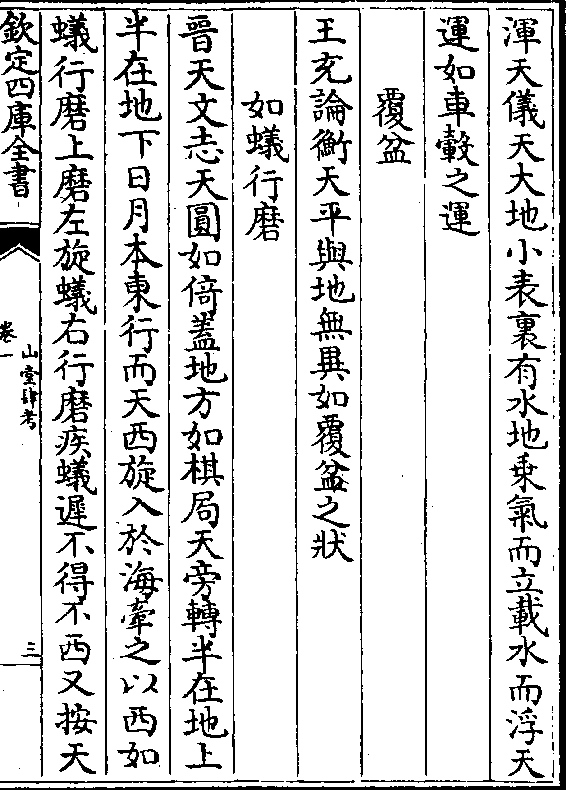 渾天儀天大地小表裏有水地乗氣而立載水而浮天
運如車轂之運
覆盆
王充論衡天平與地無異如覆盆之狀
如蟻行磨
晉天文志天圓如倚蓋地方如棋局天旁轉半在地上
半在地下日月本東行而天西旋入於海牽之以西如
蟻行磨上磨左旋蟻右行磨疾蟻遲不得不西又按天
欽定四庫全書
卷一
山堂肆考
三